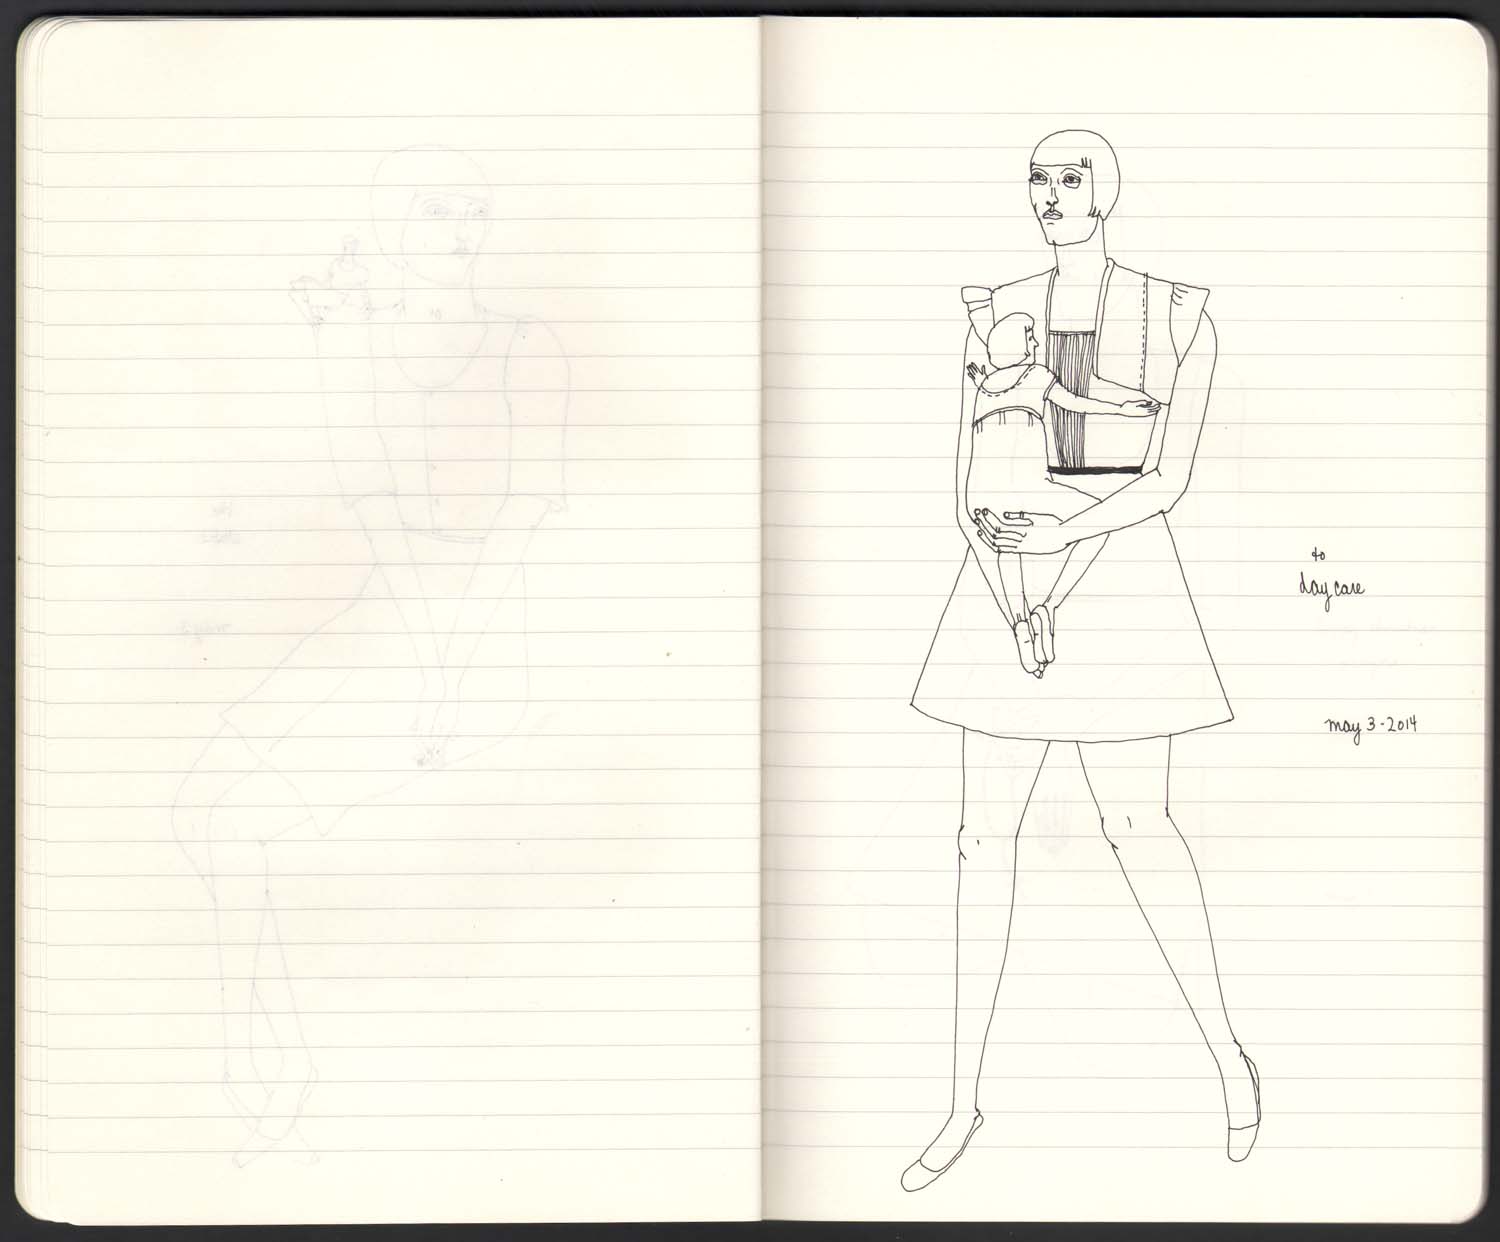 to
day care
may 3-2014